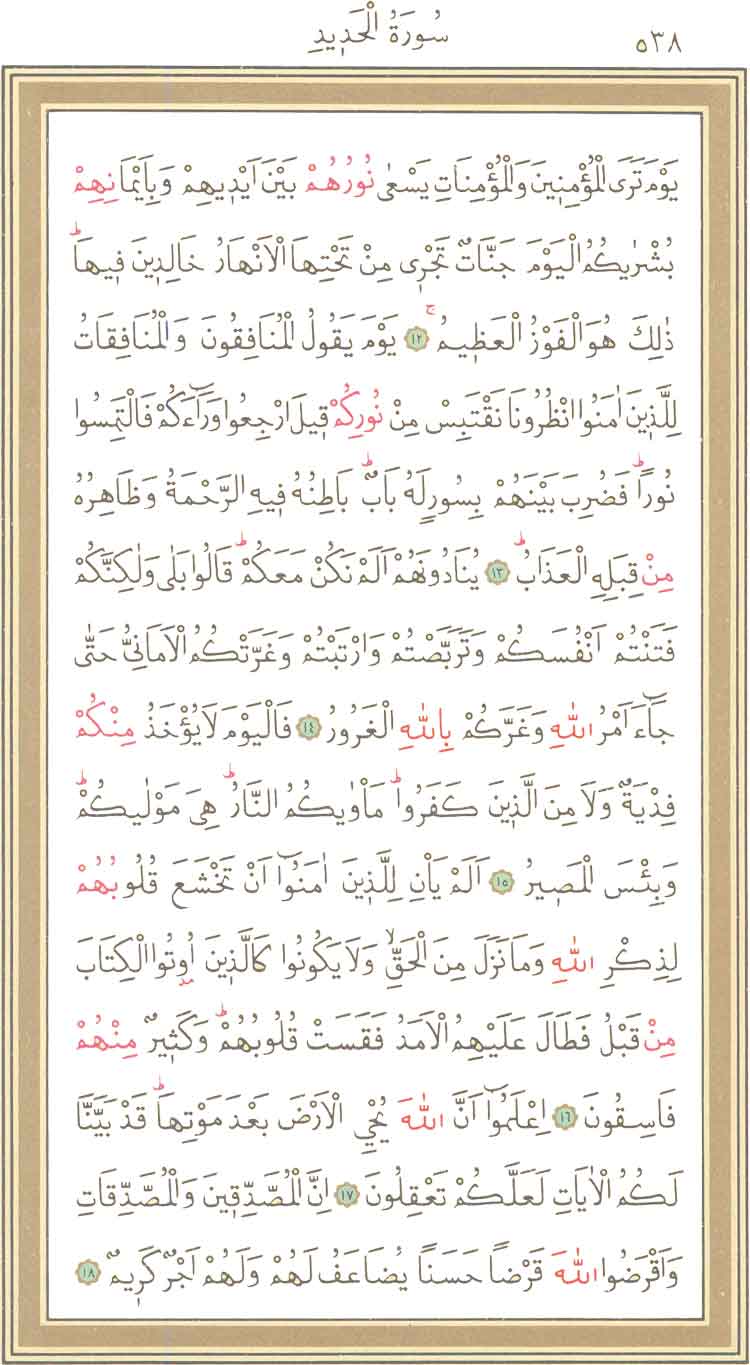 سُورَةُ الْحَد۪يدِ ٥٣٨
يَوْمَ تَرَى الْمُؤْمِن۪ينَ وَالْمُؤْمِنَاتِ يَسْعٰى نُورُهُمْ بَيْنَ اَيْد۪يهِمْ وَبِاَيْمَانِهِمْ
بُشْرٰيكُمُ الْيَوْمَ جَنَّاتٌ تَجْر۪ي مِنْ تَحْتِهَا الْاَنْهَارُ خَالِد۪ينَ ف۪يهَاۜ
ذٰلِكَ هُوَ الْفَوْزُ الْعَظ۪يمُۚ ١٢ يَوْمَ يَقُولُ الْمُنَافِقُونَ وَالْمُنَافِقَاتُ
لِلَّذ۪ينَ اٰمَنُوا انْظُرُونَا نَقْتَبِسْ مِنْ نُورِكُمْ ق۪يلَ ارْجِعُوا وَرَٓاءَكُمْ فَالْتَمِسُوا
نُورًاۜ فَضُرِبَ بَيْنَهُمْ بِسُورٍ لَهُ بَابٌۜ بَاطِنُهُ ف۪يهِ الرَّحْمَةُ وَظَاهِرُهُ
مِنْ قِبَلِهِ الْعَذَابُۜ ١٣ يُنَادُونَهُمْ اَلَمْ نَكُنْ مَعَكُمْۜ قَالُوا بَلٰى وَلٰكِنَّكُمْ
فَتَنْتُمْ اَنْفُسَكُمْ وَتَرَبَّصْتُمْ وَارْتَبْتُمْ وَغَرَّتْكُمُ الْاَمَانِيُّ حَتّٰى
جَٓاءَ اَمْرُ اللّٰهِ وَغَرَّكُمْ بِاللّٰهِ الْغَرُورُ ١٤ فَالْيَوْمَ لَا يُؤْخَذُ مِنْكُمْ
فِدْيَةٌ وَلَا مِنَ الَّذ۪ينَ كَفَرُواۜ مَأْوٰيكُمُ النَّارُۜ هِيَ مَوْلٰيكُمْۜ
وَبِئْسَ الْمَص۪يرُ ١٥ اَلَمْ يَأْنِ لِلَّذ۪ينَ اٰمَنُٓوا اَنْ تَخْشَعَ قُلُوبُهُمْ
لِذِكْرِ اللّٰهِ وَمَا نَزَلَ مِنَ الْحَقِّۙ وَلَا يَكُونُوا كَالَّذ۪ينَ اُو۫تُوا الْكِتَابَ
مِنْ قَبْلُ فَطَالَ عَلَيْهِمُ الْاَمَدُ فَقَسَتْ قُلُوبُهُمْۜ وَكَث۪يرٌ مِنْهُمْ
فَاسِقُونَ ١٦ اِعْلَمُٓوا اَنَّ اللّٰهَ يُحْيِي الْاَرْضَ بَعْدَ مَوْتِهَاۜ قَدْ بَيَّنَّا
لَكُمُ الْاٰيَاتِ لَعَلَّكُمْ تَعْقِلُونَ ١٧ اِنَّ الْمُصَّدِّق۪ينَ وَالْمُصَّدِّقَاتِ
وَاَقْرَضُوا اللّٰهَ قَرْضًا حَسَنًا يُضَاعَفُ لَهُمْ وَلَهُمْ اَجْرٌ كَر۪يمٌ ١٨